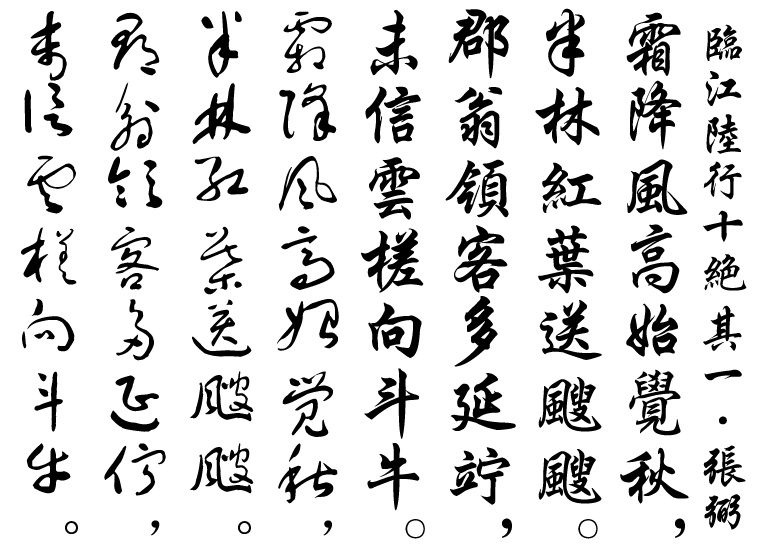 臨江陸行十絕其一・張弼
霜降風高始覺秋，
半林紅葉送颼颼。
郡翁領客多延竚，
未信雲槎向斗牛。
霜降風高始覺秋，
半林紅葉送颼颼。
郡翁領客多延佇，
未信雲槎向斗牛。